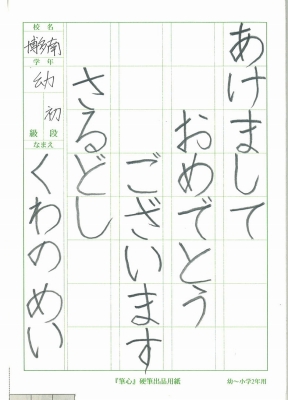 あけまして
おめでとう
ございます
さるどし
校名
博多南
学年
幼
初
級段
なまえ
くわのめい
『筆心』硬筆出品用紙
幼〜小学2年用